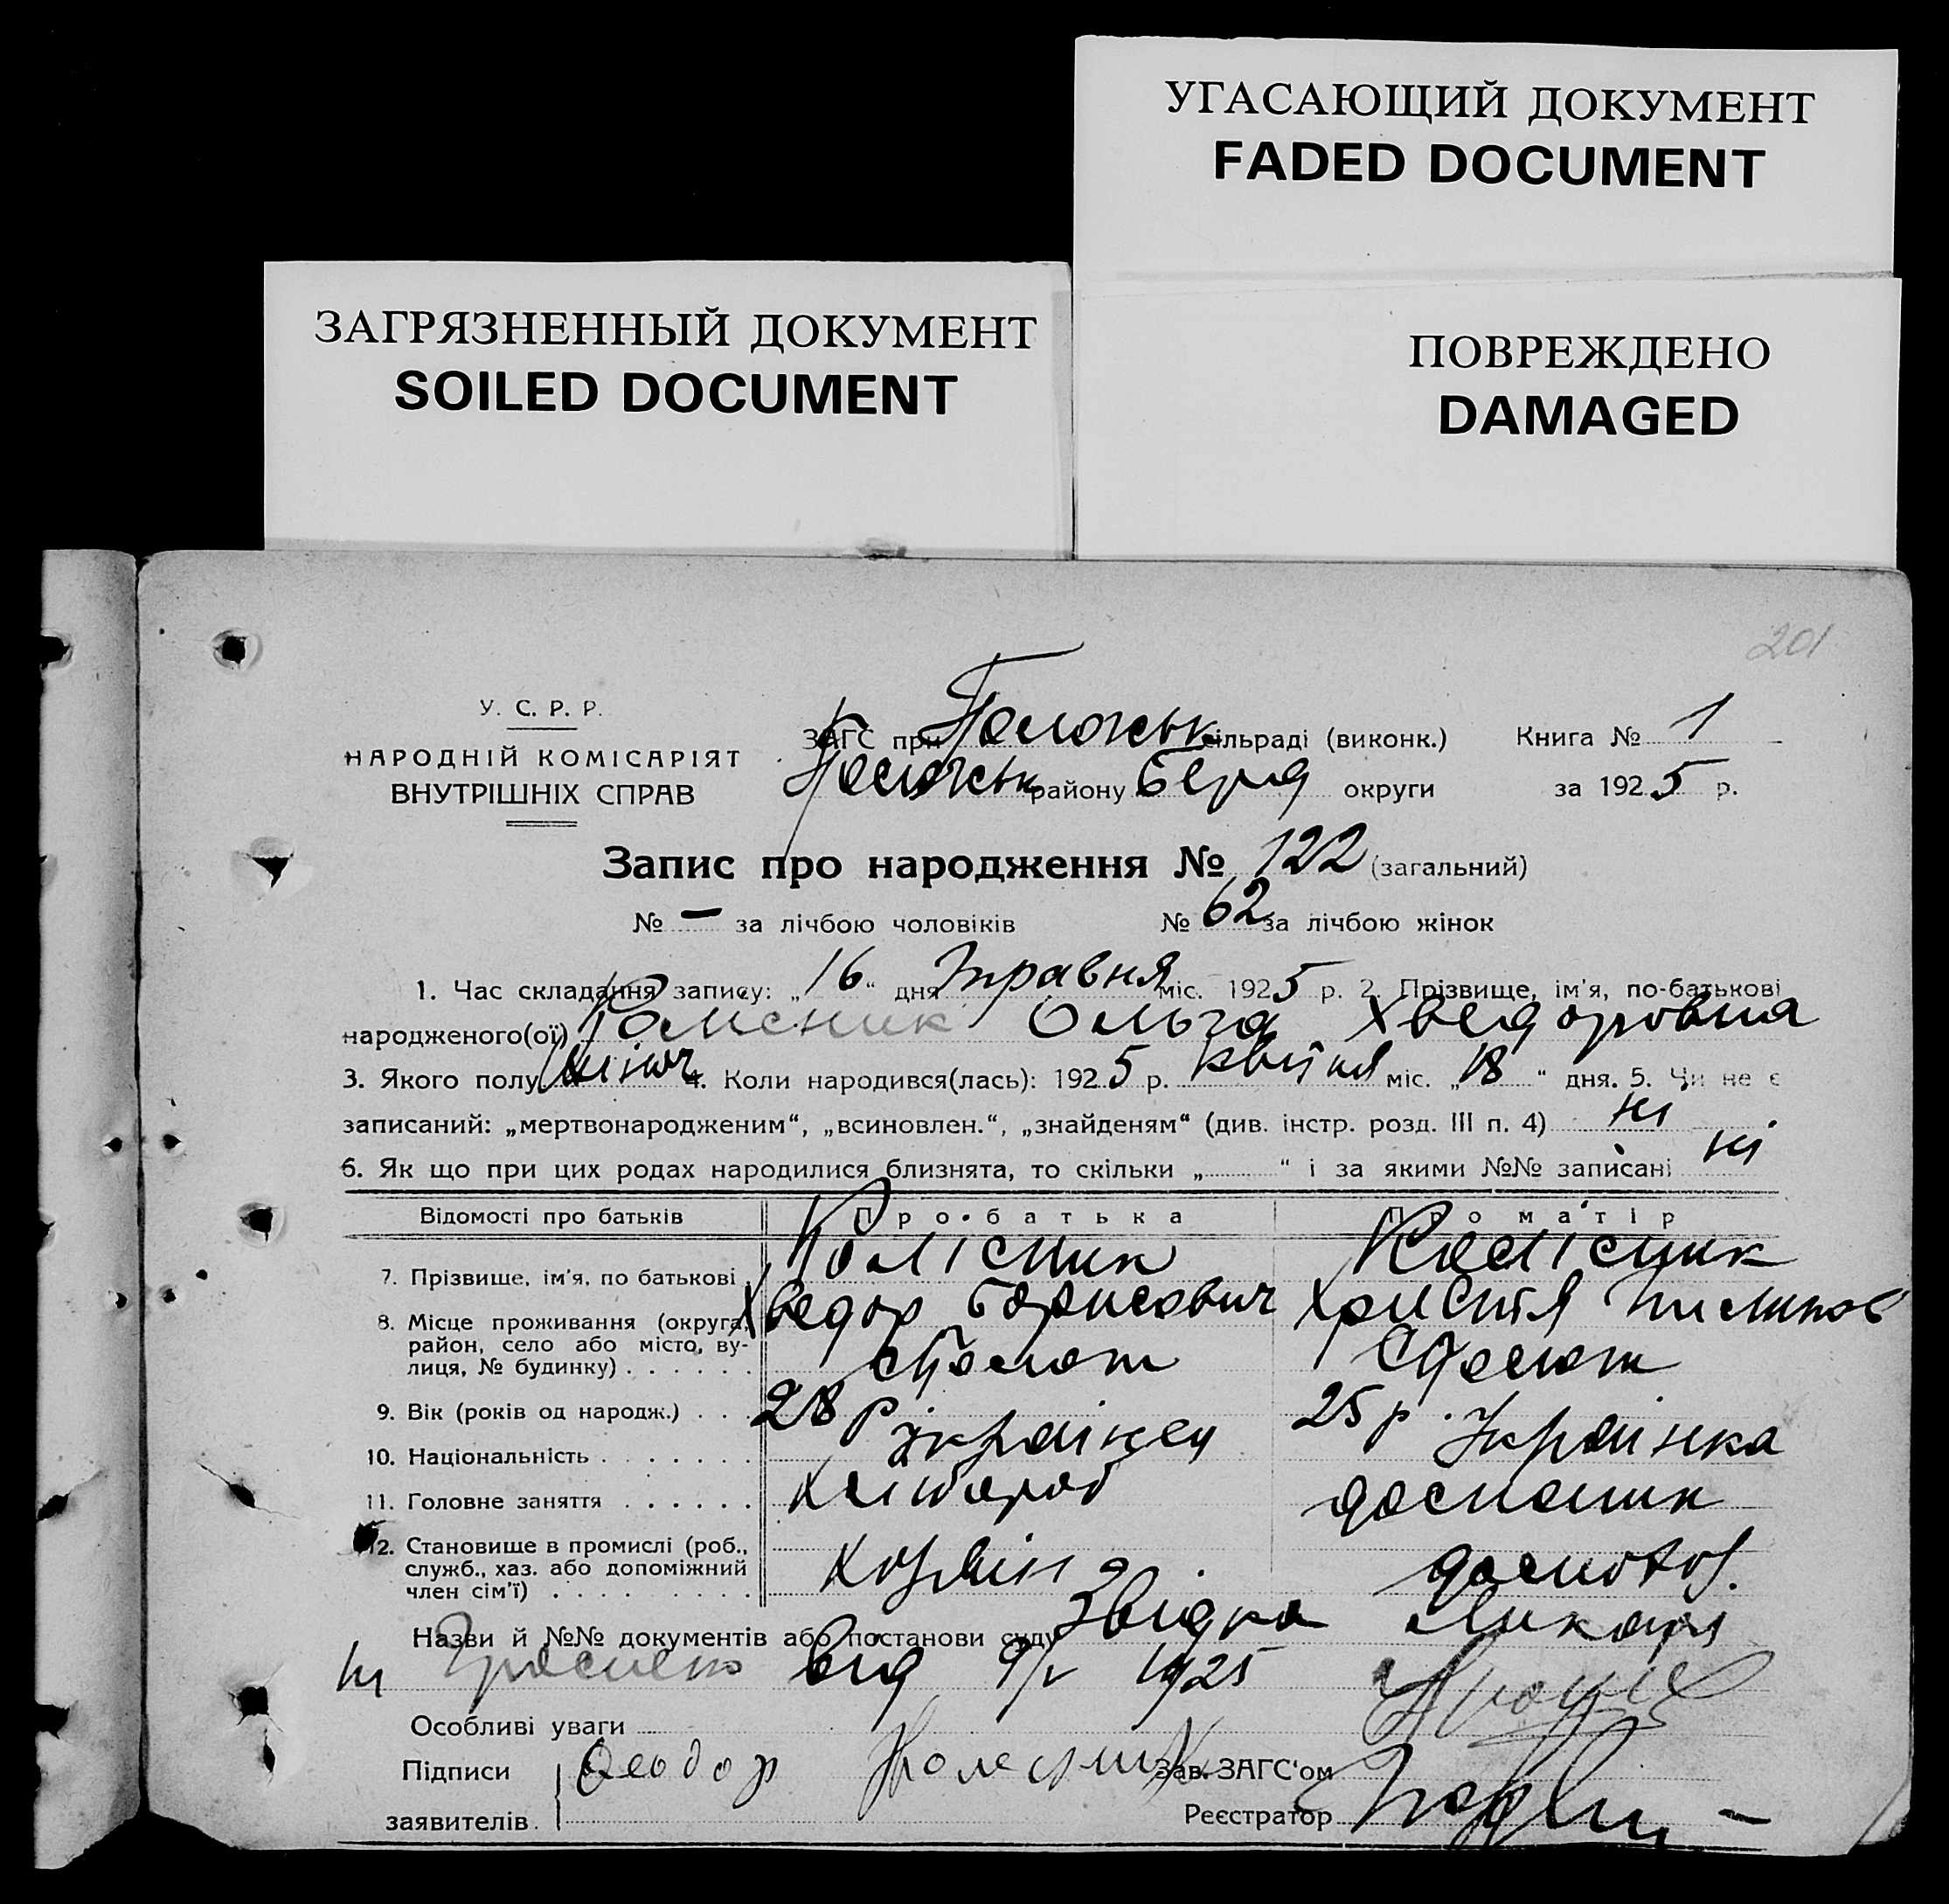 УГАСАЮЩИЙ ДОКУМЕНТ
FADED DOCUMENT
ЗАГРЯЗНЕННЫЙ ДОКУМЕНТ
SOILED DOCUMENT
ПОВРЕЖДЕНО
DAMAGED
201
У. С. Р. Р.
НАРОДНІЙ КОМІСАРІЯТ
ВНУТРІШНІХ СПРАВ
ЗАГС при сільраді (виконк.) Книга № 1
району Берд округи за 1925 р.
Запис про народження № 122 (загальний)
№ — за лічбою чоловіків № 62 за лічбою жінок
1. Час складання запису: „16“ дня травня міс. 1925 р. 2. Прізвище, ім'я, по-батькові
народженого(ої) Колісник Ольга Хведоровна
3. Якого полу жіноч 4. Коли народився(лась): 1925 р. квітня міс. „18“ дня. 5. Чи не є
записаний: „мертвонародженим“, „всиновлен.“, „знайденям“ (див. інстр. розд. III п. 4) ні
6. Як що при цих родах народилися близнята, то скільки „ “ і за якими №№ записані ні
Відомості про батьків Про батька Про матір
7. Прізвище, ім'я, по батькові Колісник Колісник
Хведор Борисович Христя Пилипов
8. Місце проживання (округа, район, село або місто, ву-
лиця, № будинку)
9. Вік (років од народж.) 28 р 25 р.
10. Національність Українец Українка
11. Головне заняття хлібороб
12. Становище в промислі (роб.,
служб., хаз. або допоміжний
член сім'ї) хазяін
Назви й №№ документів або постанови суду
від 9/V 1925
Особливі уваги
Підписи Феодор Колесник Зав. ЗАГС'ом
заявителів. Реєстратор